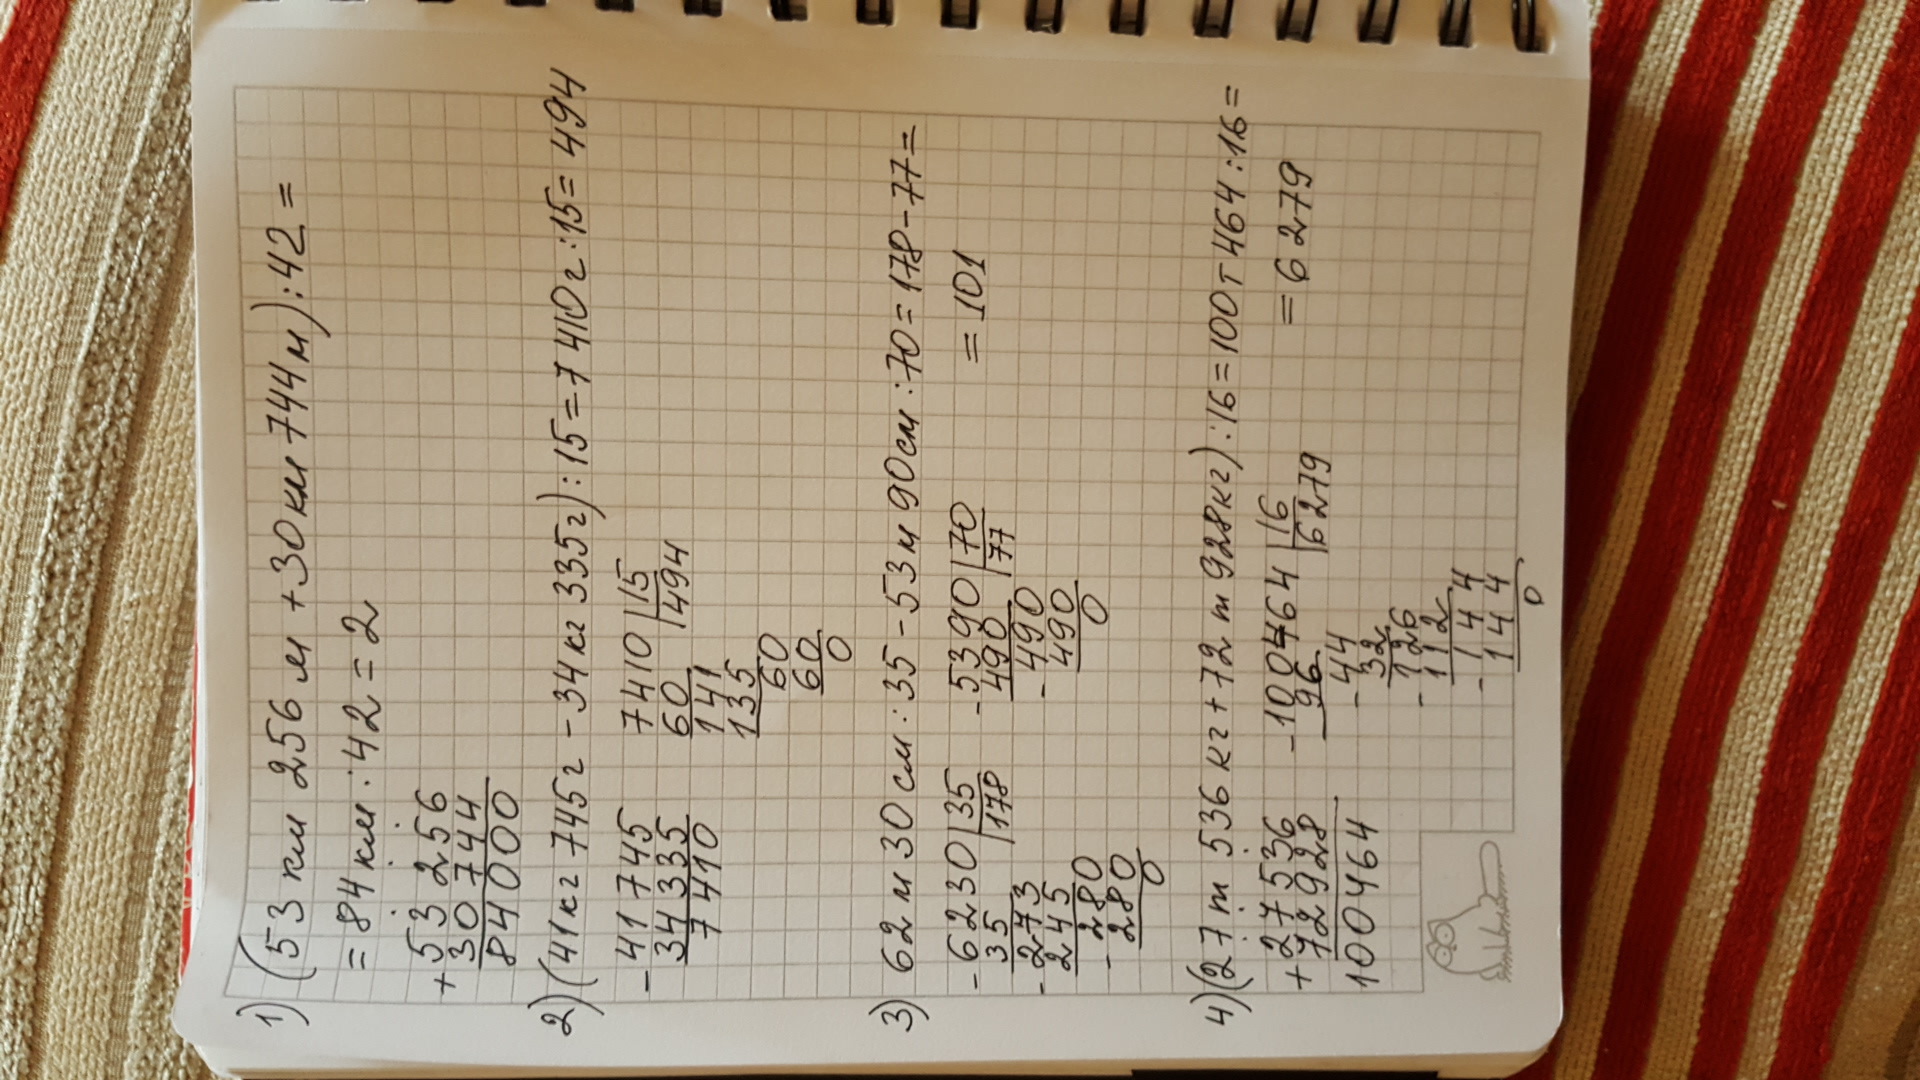 1) (53 км 256 м + 30 км 744 м) : 42 =
= 84 км : 42 = 2
+ 53 256
30 744
84 000
2) (41 кг 745 г - 34 кг 335 г) : 15 = 7 410 г : 15 = 494
- 41 745
34 335
7 410
7410 | 15
60 | 494
141
135
60
60
0
3) 62 м 30 см : 35 - 53 м 90 см : 70 = 178 - 77 =
= 101
- 6230 | 35
35 | 178
- 273
245
- 280
280
0
- 5390 | 70
490 | 77
- 490
490
0
4) (27 т 536 кг + 72 т 928 кг) : 16 = 100 т 464 : 16 =
= 6 279
+ 27 536
72 928
100 464
- 100464 | 16
96 | 6279
- 44
32
- 126
112
- 144
144
0